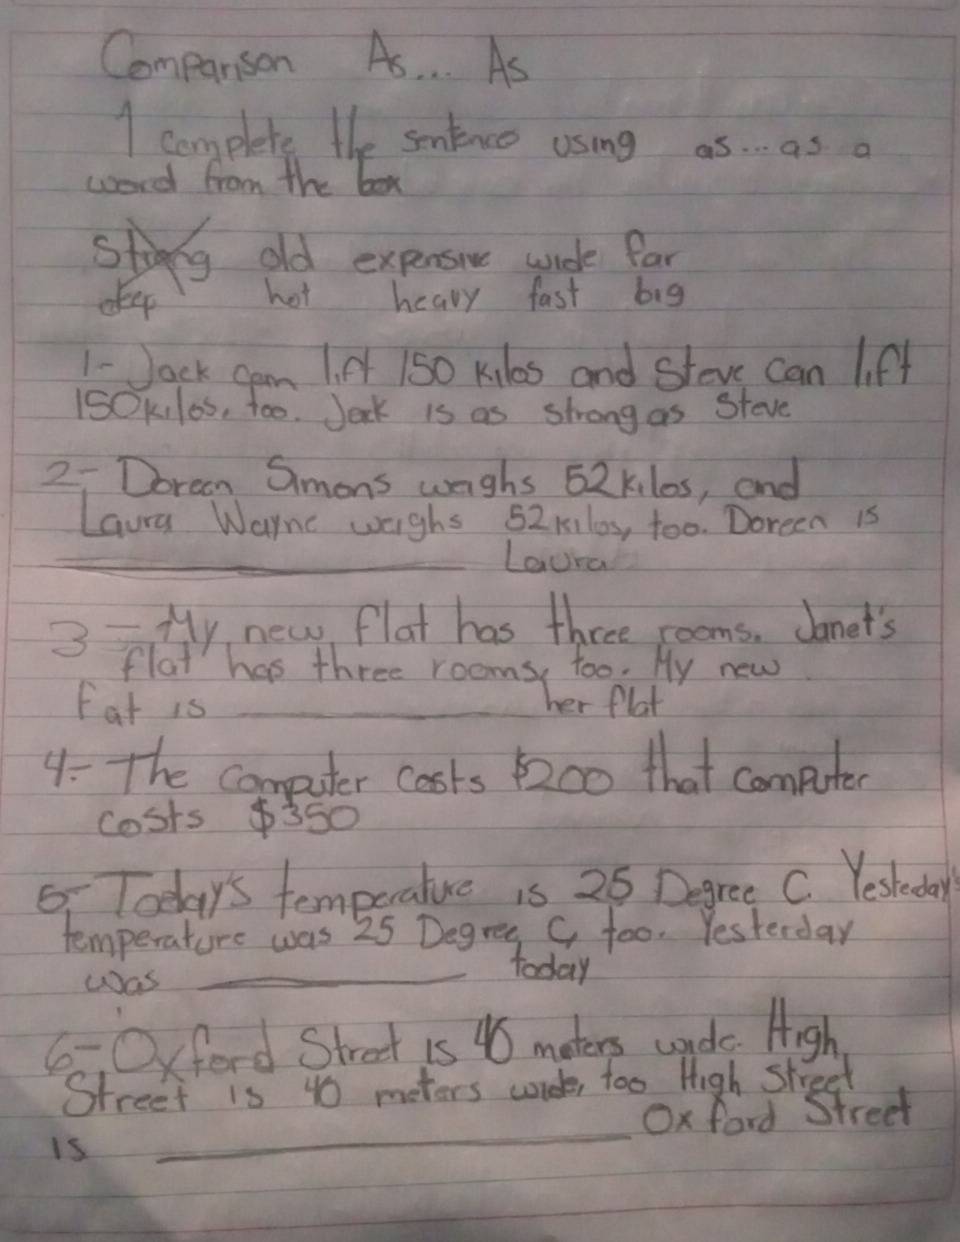 Comparison As... As
1 complete the sentence using as...as a
word from the box
Strong old expensive wide far
deep hot heavy fast big
1- Jack can lift 150 kilos and Steve can lift
150 kilos, too. Jack is as strong as Steve
2- Doreen Simons weighs 52 kilos, and
Laura Wayne weighs 52 kilos, too. Doreen is
Laura
3- My new flat has three rooms. Janet's
flat has three rooms, too. My new
Fat is her flat
4- The computer costs $200 that computer
costs $350
5- Today's temperature is 25 Degree C. Yesteday's
temperature was 25 Degree C, too. Yesterday
was today
6- Oxford Street is 40 meters wide. High
Street is 40 meters wide, too High Street
is Oxford Street